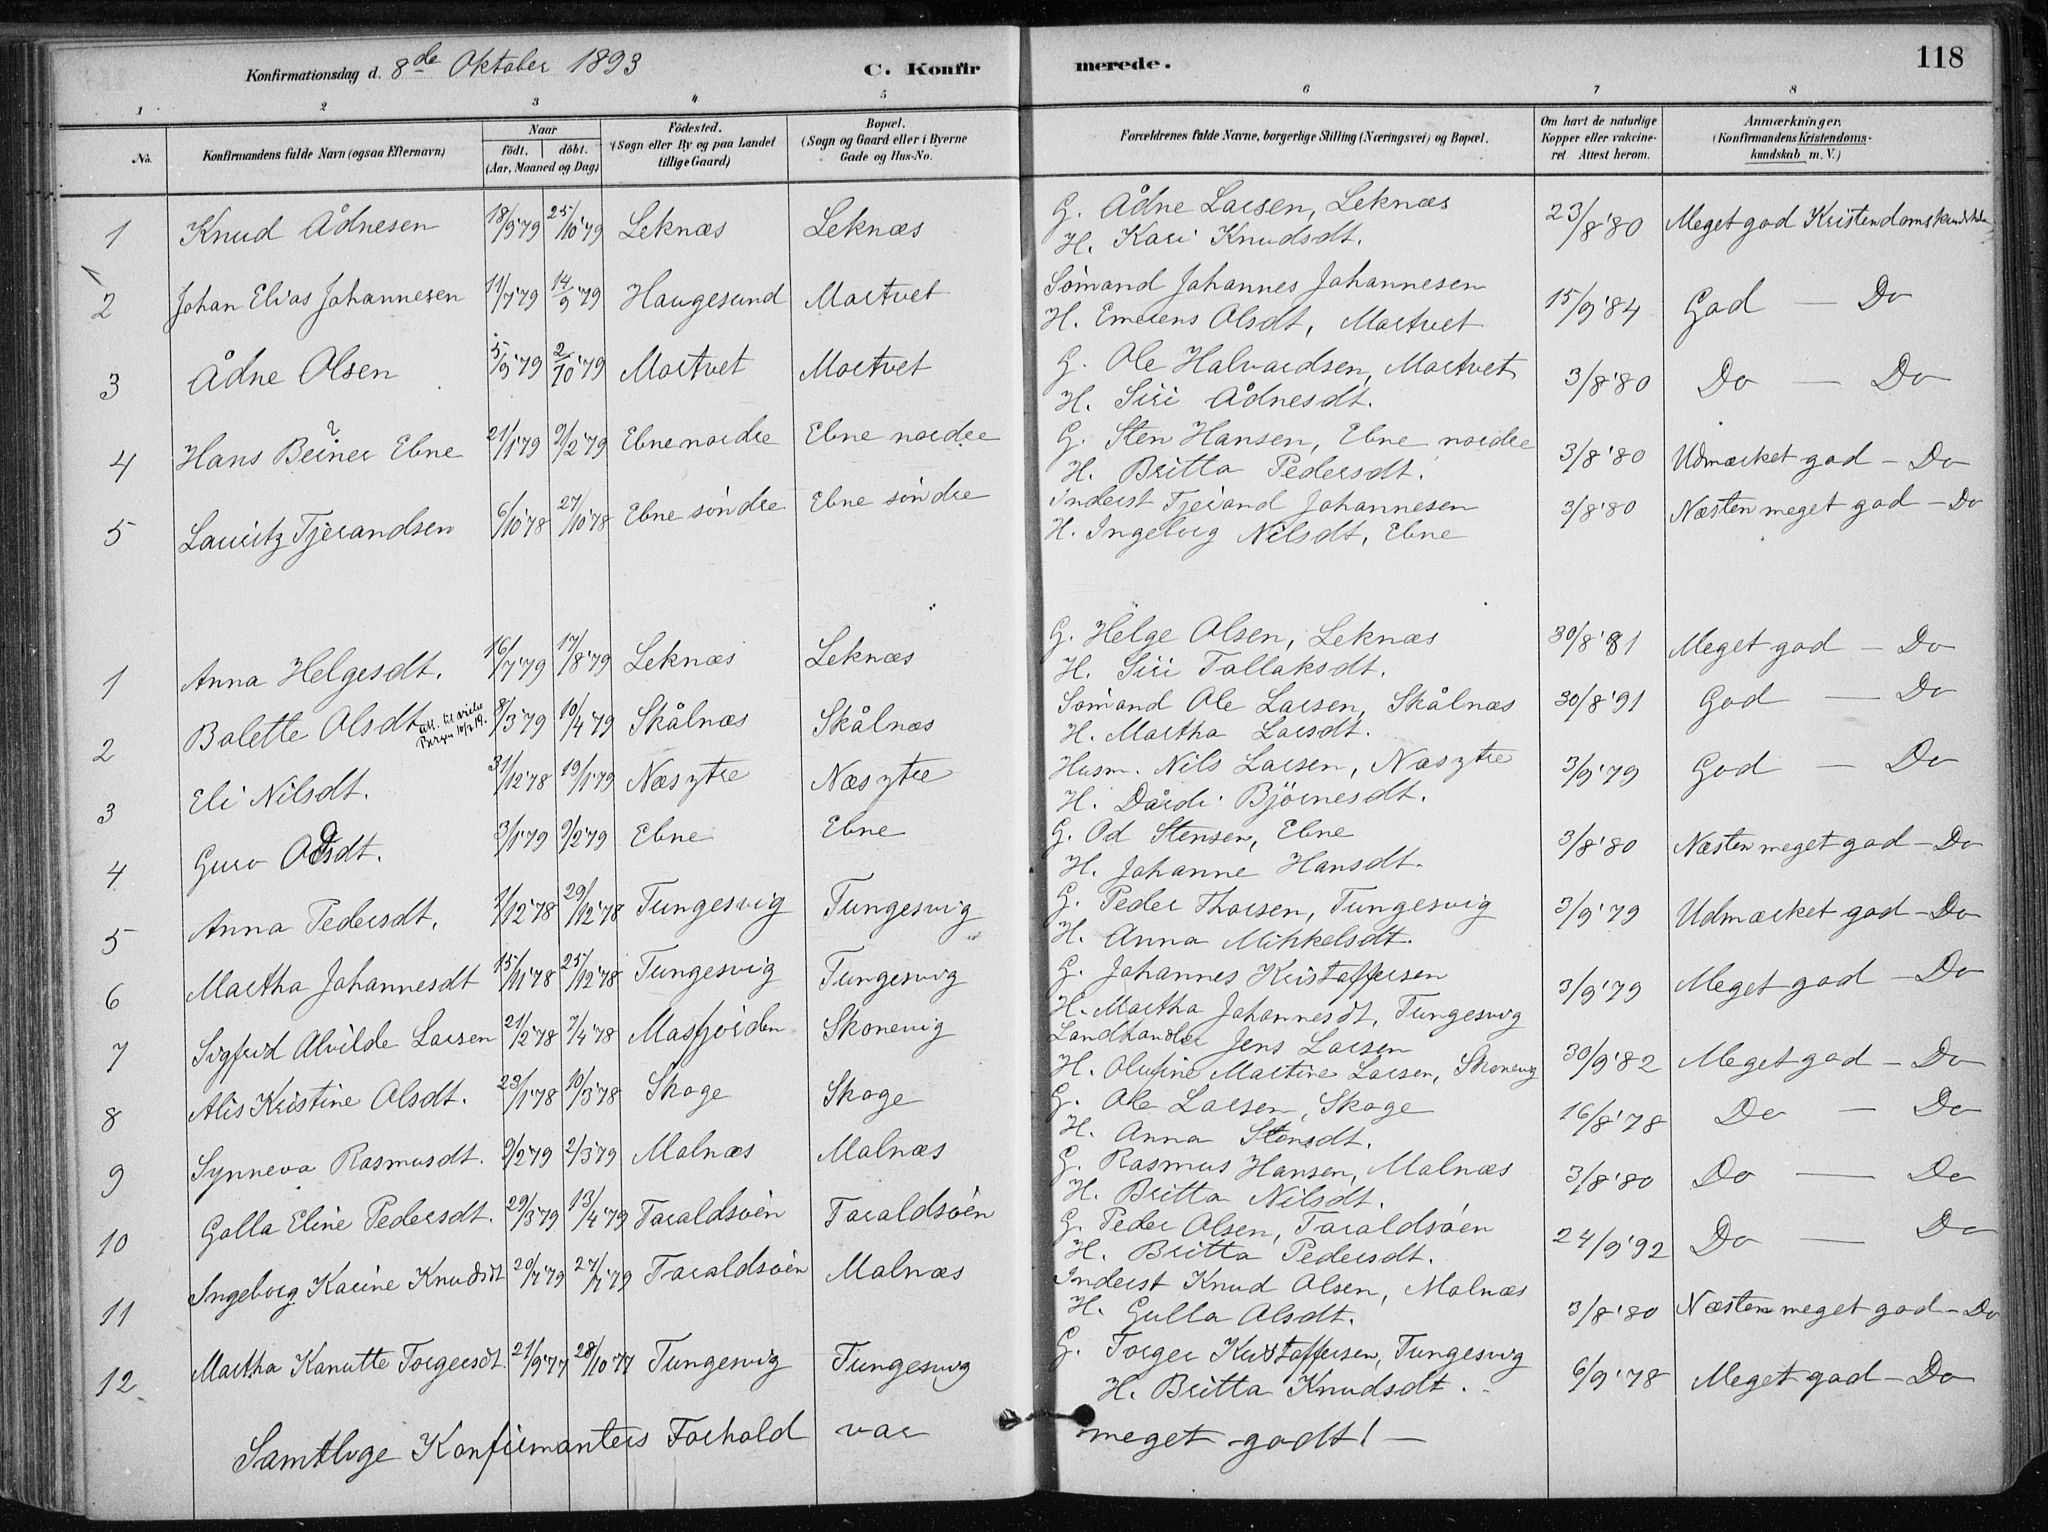 Konfirmationsdag d. 8de Oktober 1893 C. Konfir merede. 118
1 2 3 4 5 6 7 8
No. Konfirmandens fulde Navn (ogsaa Efternavn) Naar födt. döbt. (Aar, Maaned og Dag) Födested. (Sogn eller By og paa Landet tillige Gaard) Bopæl. (Sogn og Gaard eller i Byerne Gade og Hus-No. Forældrenes fulde Navne, borgerlige Stilling (Næringsvei) og Bopæl. Om havt de naturlige Kopper eller vakcineret Attest herom. Anmærkninger, (Konfirmandens Kristendomskundskab m. V.)
1 Knud Ådnesen 18/9'79 25/10'79 Leknæs Leknæs G. Ådne Larsen, Leknæs 23/8'80 Meget god Kristendomskundskab
H. Kari Knudsdt.
2 Johan Elias Johannesen 11/7'79 14/9'79 Haugesund Mortvet Sömand Johannes Johannesen 15/9'84 God — Do
H. Emerens Olsdt, Mortvet
3 Ådne Olsen 5/9'79 2/10'79 Mortvet Mortvet G. Ole Halvardsen, Mortvet 3/8'80 Do — Do
H. Siri Ådnesdt.
4 Hans Beiner Ebne 21/1'79 9/2'79 Ebne nordre Ebne nordre G. Sten Hansen, Ebne nordre 3/8'80 Udmærket god — Do
H. Britta Pedersdt.
5 Lauritz Tjerandsen 6/10'78 27/10'78 Ebne söndre Ebne söndre Inderst Tjerand Johannesen 3/8'80 Næsten meget god — Do
H. Ingeborg Nilsdt, Ebne
1 Anna Helgesdt. 16/7'79 17/8'79 Leknæs Leknæs G. Helge Olsen, Leknæs 30/8'81 Meget god — Do
H. Siri Tollaksdt.
2 Bolette Olsdt att. til vielse Bergen 8/3'79 10/4'79 Skålnæs Skålnæs Sömand Ole Larsen, Skålnæs 30/8'91 God — Do
H. Martha Larsdt.
3 Eli Nilsdt. 31/12'78 19/1'79 Næs ytre Næs ytre Husm. Nils Larsen, Næs ytre 3/9'79 God — Do
H. Dårdi Björnesdt.
4 Guro Odsdt. 3/1'79 9/2'79 Ebne Ebne G. Od Stensen, Ebne 3/8'80 Næsten meget god — Do
H. Johanne Hansdt.
5 Anna Pedersdt. 2/12'78 29/12'78 Tungesvig Tungesvig G. Peder Thorsen, Tungesvig 3/9'79 Udmærket god — Do
H. Anna Mikkelsdt.
6 Martha Johannesdt 15/11'78 25/12'78 Tungesvig Tungesvig G. Johannes Kristoffersen 3/9'79 Meget god — Do
H. Martha Johannesdt, Tungesvig
7 Sigfrid Alvilde Larsen 21/2'78 7/4'78 Masfjorden Skonevig Landhandler Jens Larsen 30/9'82 Meget god — Do
H. Olufine Martine Larsen, Skonevig
8 Alis Kristine Olsdt. 23/1'78 10/3'78 Skoge Skoge G. Ole Larsen, Skoge 16/8'78 Do — Do
H. Anna Stensdt.
9 Synneva Rasmusdt. 9/2'79 2/3'79 Molnæs Molnæs G. Rasmus Hansen, Molnæs 3/8'80 Do — Do
H. Britta Nilsdt.
10 Golla Eline Pedersdt. 29/3'79 13/4'79 Taraldsöen Taraldsöen G. Peder Olsen, Taraldsöen 24/9'92 Do — Do
H. Britta Pedersdt.
11 Ingeborg Karine Knudsdt 20/7'79 27/7'79 Taraldsöen Molnæs Inderst Knud Olsen, Molnæs 3/8'80 Næsten meget god — Do
H. Gulla Olsdt.
12 Martha Kanutte Torgersdt. 21/9'77 28/10'77 Tungesvig Tungesvig G. Torger Kristoffersen, Tungesvig 6/9'78 Meget god — Do
H. Britta Knudsdt.
Samtlige Konfirmanters Forhold var meget godt! —